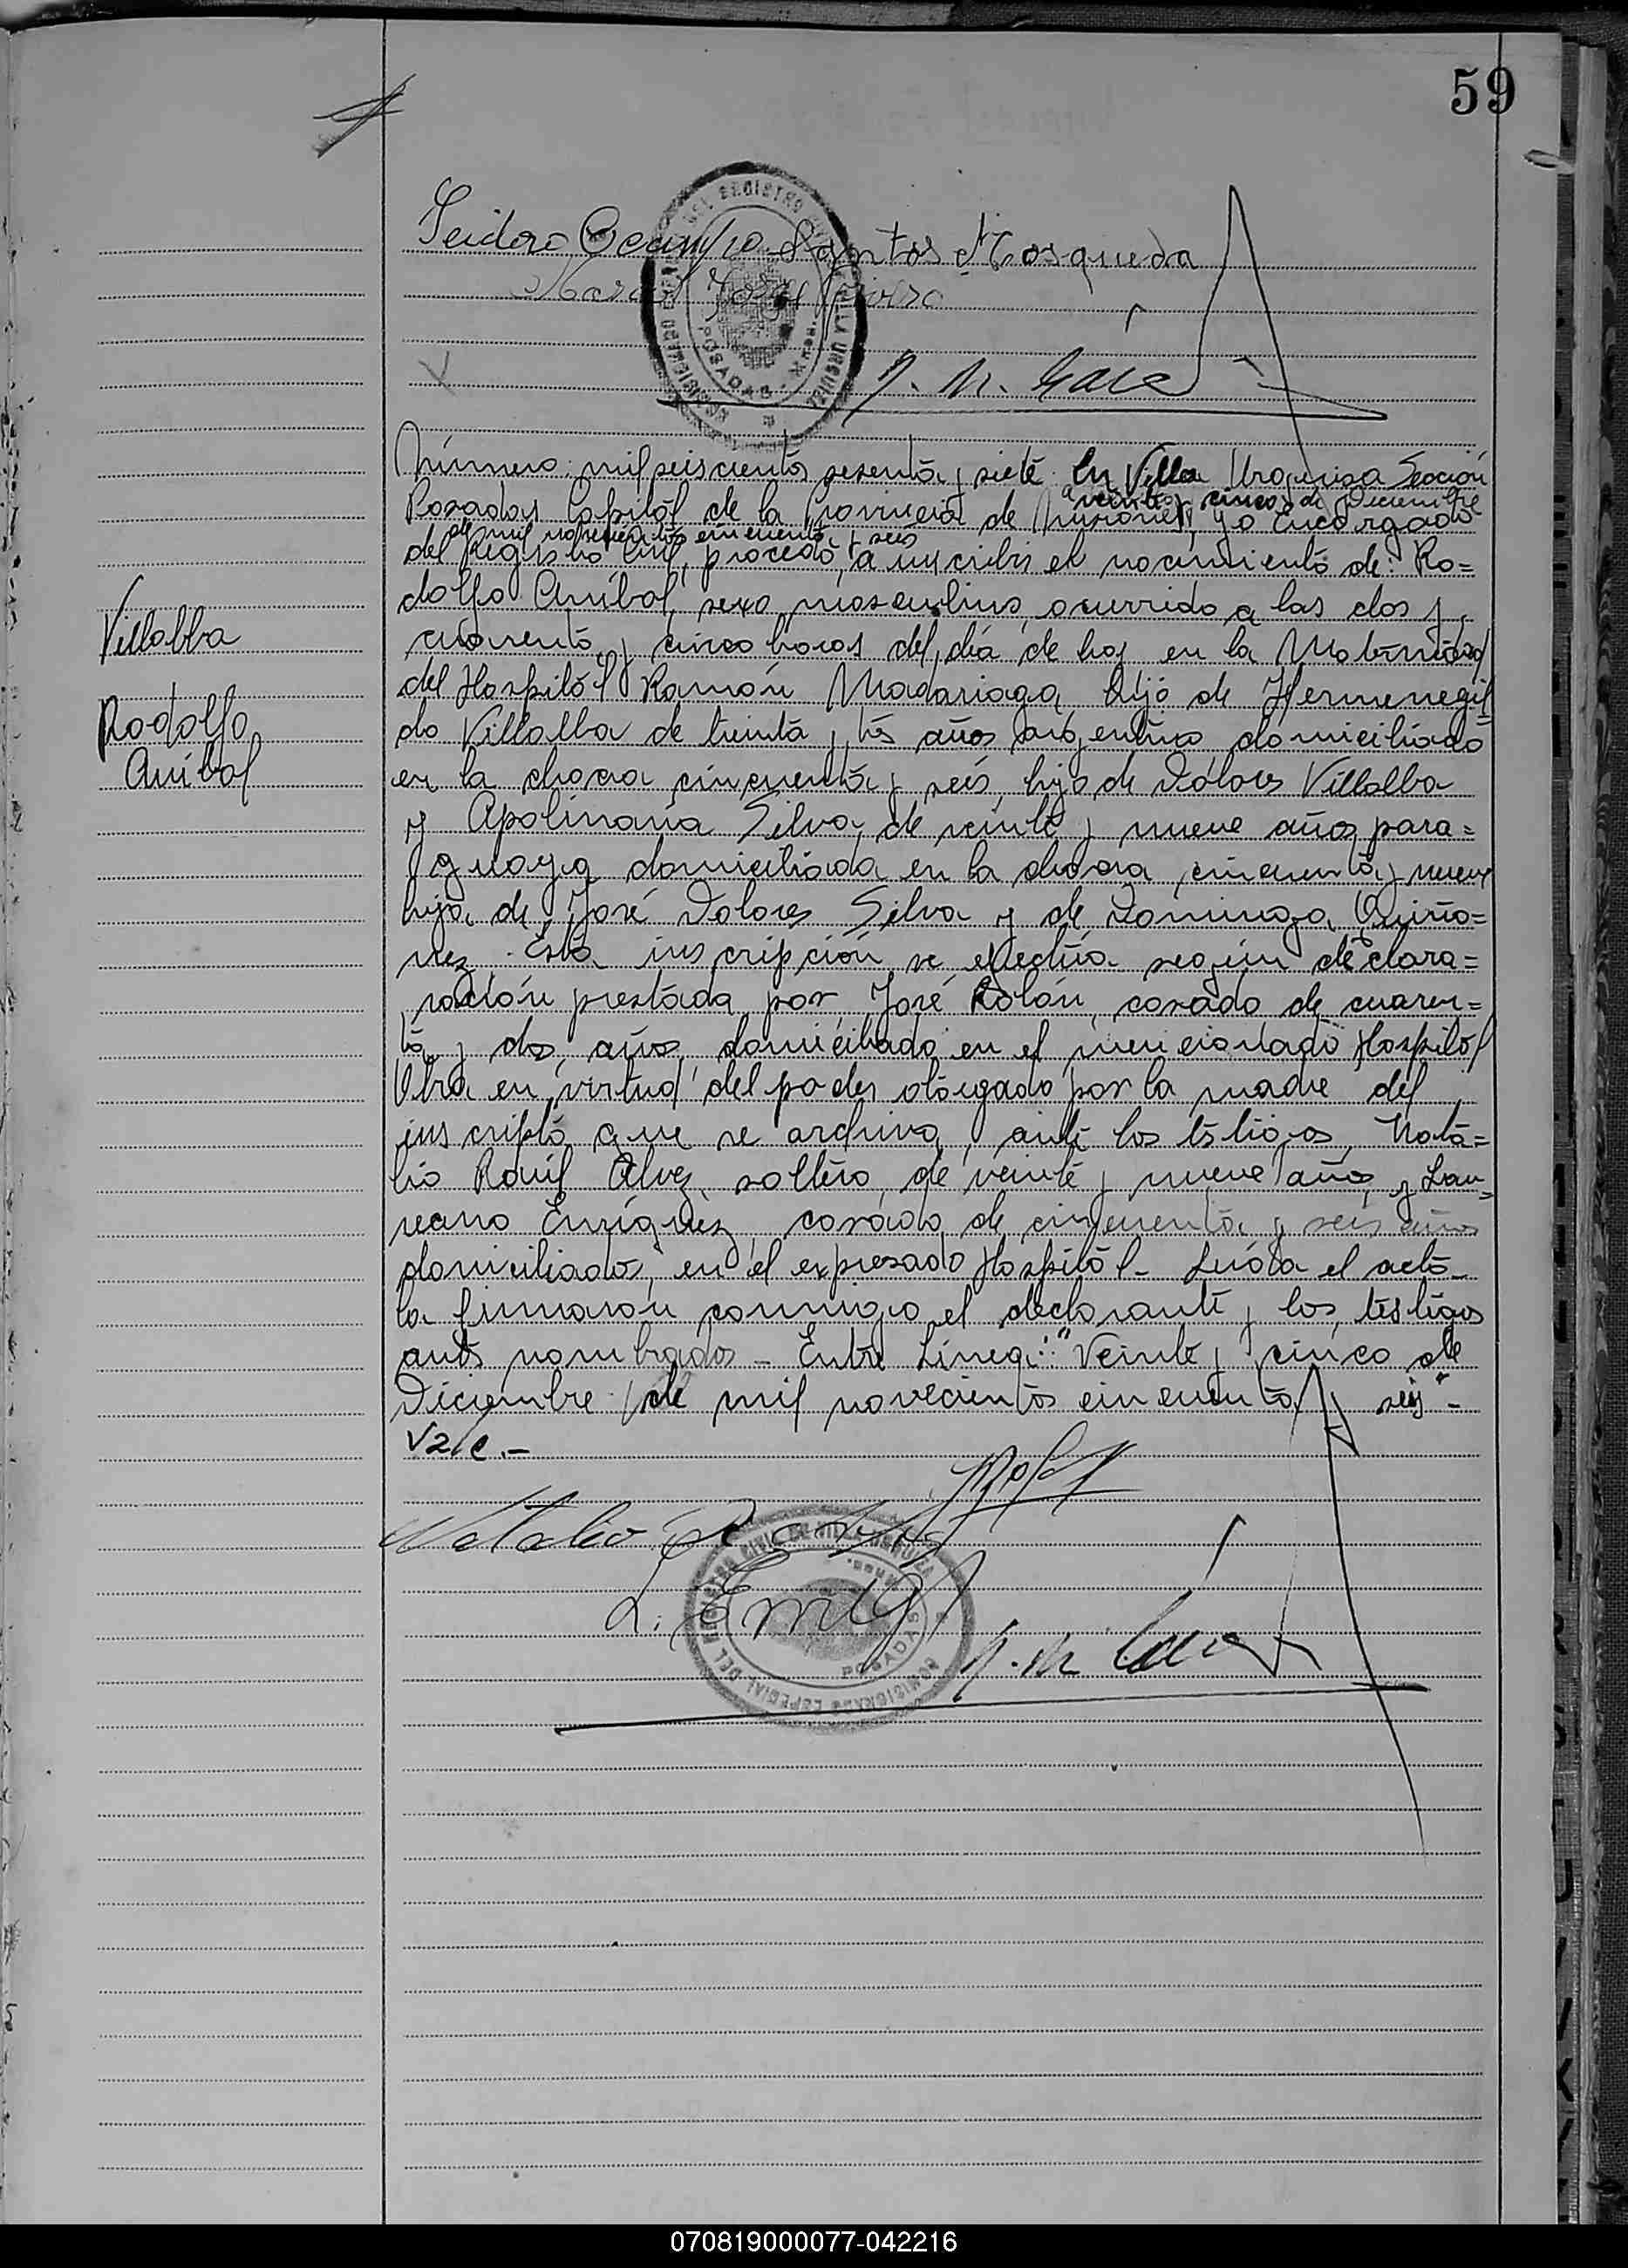 59
Isidoro Ocampo Santos Mosqueda
DEL REGISTRO
VILLA URQUIZA
POSADAS
Número: mil seiscientos sesenta y siete. En Villa Urquiza Sección
Posadas Capital de la Provincia de Misiones, a veinte y cinco de Diciembre
de mil novecientos cincuenta y seis yo Encargado
del Registro Civil, procedo, a inscribir el nacimiento de: Ro=
dolfo Aníbal, sexo masculino, ocurrido a las dos y
cuarenta y cinco horas del día de hoy en la Maternidad
del Hospital Ramón Madariaga, hijo de Hermenegil
do Villalba de treinta y tres años argentino domiciliado
en la chacra cincuenta y seis, hijo de Dolores Villalba
y Apolinaria Silva, de veinte y nueve años, para=
guaya domiciliada en la chacra cincuenta y nueve
hija de José Dolores Silva y de Dominga Quiño=
nez. Esta inscripción se efectúa según declara=
ración prestada por José Rolón, casado de cuaren=
ta y dos años, domiciliado en el mencionado Hospital
Obra en virtud del poder otorgado por la madre del
inscripto que se archiva, ante los testigos, Nata=
lio Raúl Alvez, soltero, de veinte y nueve años y Lau=
reano Enríquez, casado, de cincuenta y seis años
domiciliados, en el expresado Hospital- Leída el acta
la firmaron conmigo el declarante y los testigos
antes nombrados - Entre Línea: "Veinte y cinco de
Diciembre de mil novecientos cincuenta y seis" -
Vale.-
Villalba
Rodolfo
Aníbal
Natalio R.
POSADAS
070819000077-042216